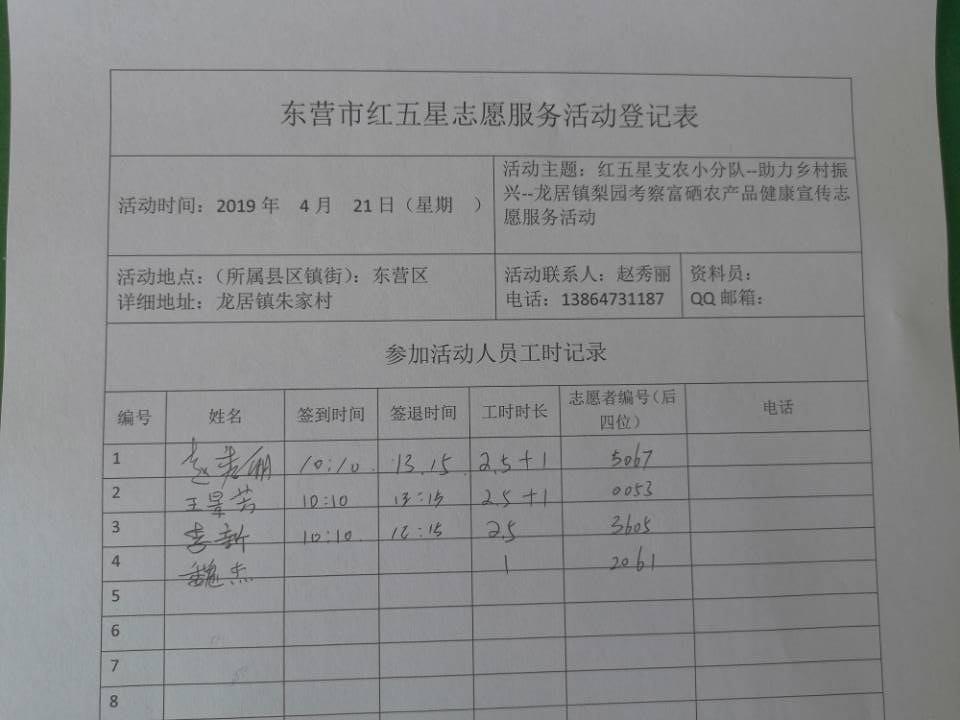 东营市红五星志愿服务活动登记表
活动时间：2019 年 4 月 21 日（星期 ）
活动主题：红五星支农小分队--助力乡村振
兴--龙居镇梨园考察富硒农产品健康宣传志
愿服务活动
活动地点：（所属县区镇街）：东营区
详细地址：龙居镇朱家村
活动联系人：赵秀丽
电话：13864731187
资料员：
QQ 邮箱：
参加活动人员工时记录
编号 姓名 签到时间 签退时间 工时时长 志愿者编号（后四位） 电话
1 赵秀丽 10:10 13.15 2.5+1 5067
2 王景芸 10:10 13:15 2.5+1 0053
3 李新 10:10 2.5 3605
4 魏杰 1 2061
5
6
7
8